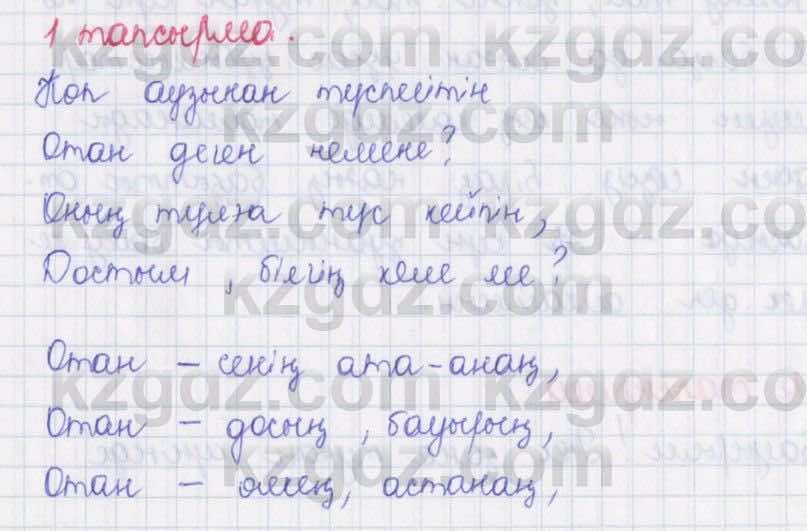 1 тапсырма.
Көп аузынан түспейтін
Отан деген немене?
Оның тұлға түс кейпін,
Достым, білгің келе ме?
Отан – сенің ата-анаң,
Отан – досың, бауырың,
Отан – өлкең, астанаң,
kzgdz.com